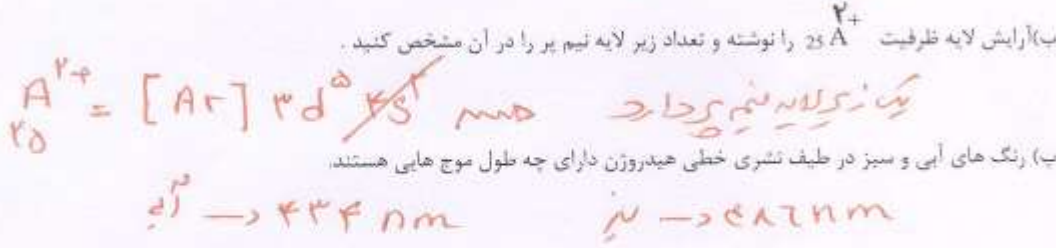 ب)آرایش لایه ظرفیت ₂₅A²⁺ را نوشته و تعداد زیر لایه نیم پر را در آن مشخص کنید .
₂₅A²⁺ = [Ar] ۳d⁵ ۴s² یک زیر لایه نیم پر دارد
ب) رنگ های آبی و سبز در طیف نشری خطی هیدروژن دارای چه طول موج هایی هستند.
آبی → ۴۳۴ nm سبز → ۴۸۶ nm